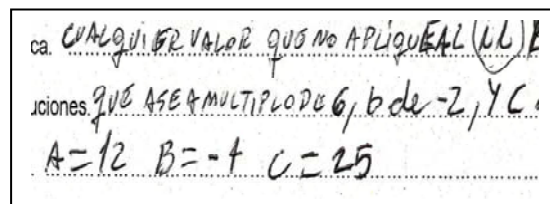 ca. CUALQUIER VALOR QUE NO APLIQUE AL
uciones. QUE A SEA MULTIPLO DE 6, b de -2, Y C
A = 12 B = -4 C = 25